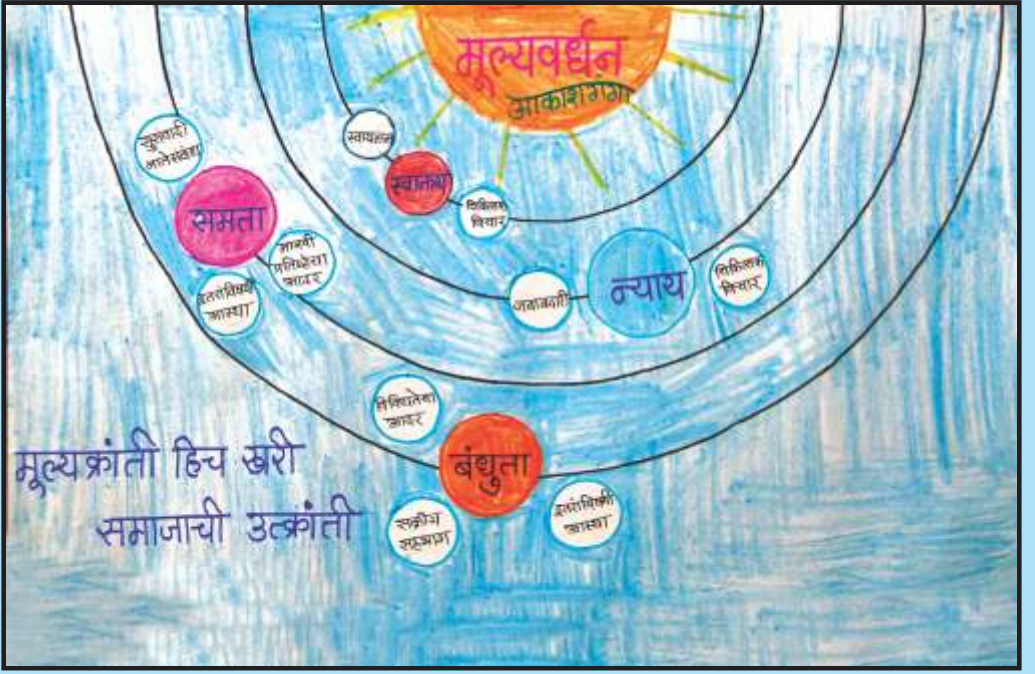 मूल्यवर्धन
आकाशगंगा
स्वातंत्र्य
विचार
समता
मानवी
प्रतिष्ठेचा
आदर
इतरांविषयी
आस्था
जबाबदारी
न्याय
चिकित्सक
विचार
विविधतेचा
आदर
बंधुता
सक्रीय
सहभाग
इतरांविषयी
आस्था
मूल्यक्रांती हिच खरी
समाजाची उत्क्रांती